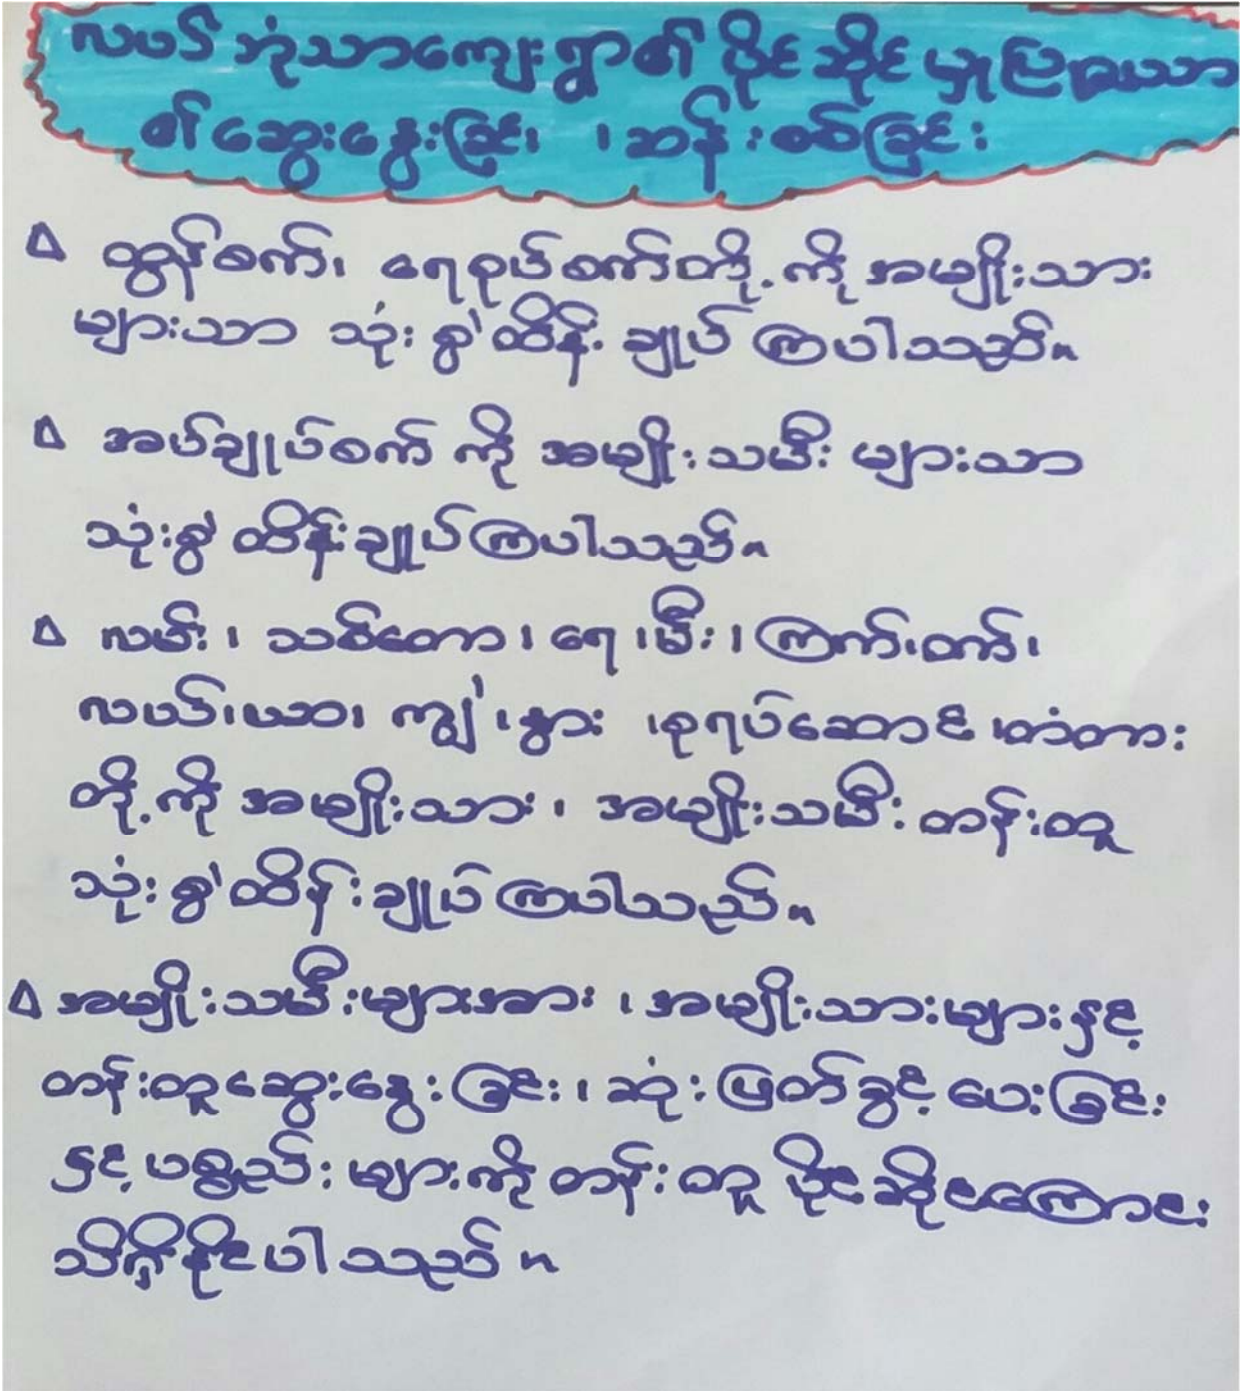 လဖဝ် ဘုံသာကျေးရွာ၏ ပိုင်ဆိုင်မှုပြဇယား
၏ ဆွေးနွေးခြင်း ၊ ဆန်းစစ်ခြင်း
Δ ထွန်စက်၊ ရေစုပ်စက်တို့ကို အမျိုးသား
များသာ သုံးစွဲထိန်းချုပ်ကြပါသည်။
Δ အပ်ချုပ်စက် ကို အမျိုးသမီး များသာ
သုံးစွဲ ထိန်းချုပ်ကြပါသည်။
Δ လမ်း ၊ သစ်တော ၊ ရေ ၊ မီး ၊ ကြက်၊ဝက် ၊
လယ်၊ယာ၊ ကျွဲ ၊ နွား ၊ စုရပ်ဆောင် ၊တံတား
တို့ကို အမျိုးသား ၊ အမျိုးသမီး တန်းတူ
သုံးစွဲထိန်းချုပ်ကြပါသည်။
Δ အမျိုးသမီးများအား ၊ အမျိုးသားများနှင့်
တန်းတူဆွေးနွေးခြင်း ၊ ဆုံးဖြတ်ခွင့် ပေးခြင်း
နှင့် ပစ္စည်းများကို တန်းတူ ပိုင်ဆိုင်ကြောင်း
သိရှိနိုင်ပါသည်။